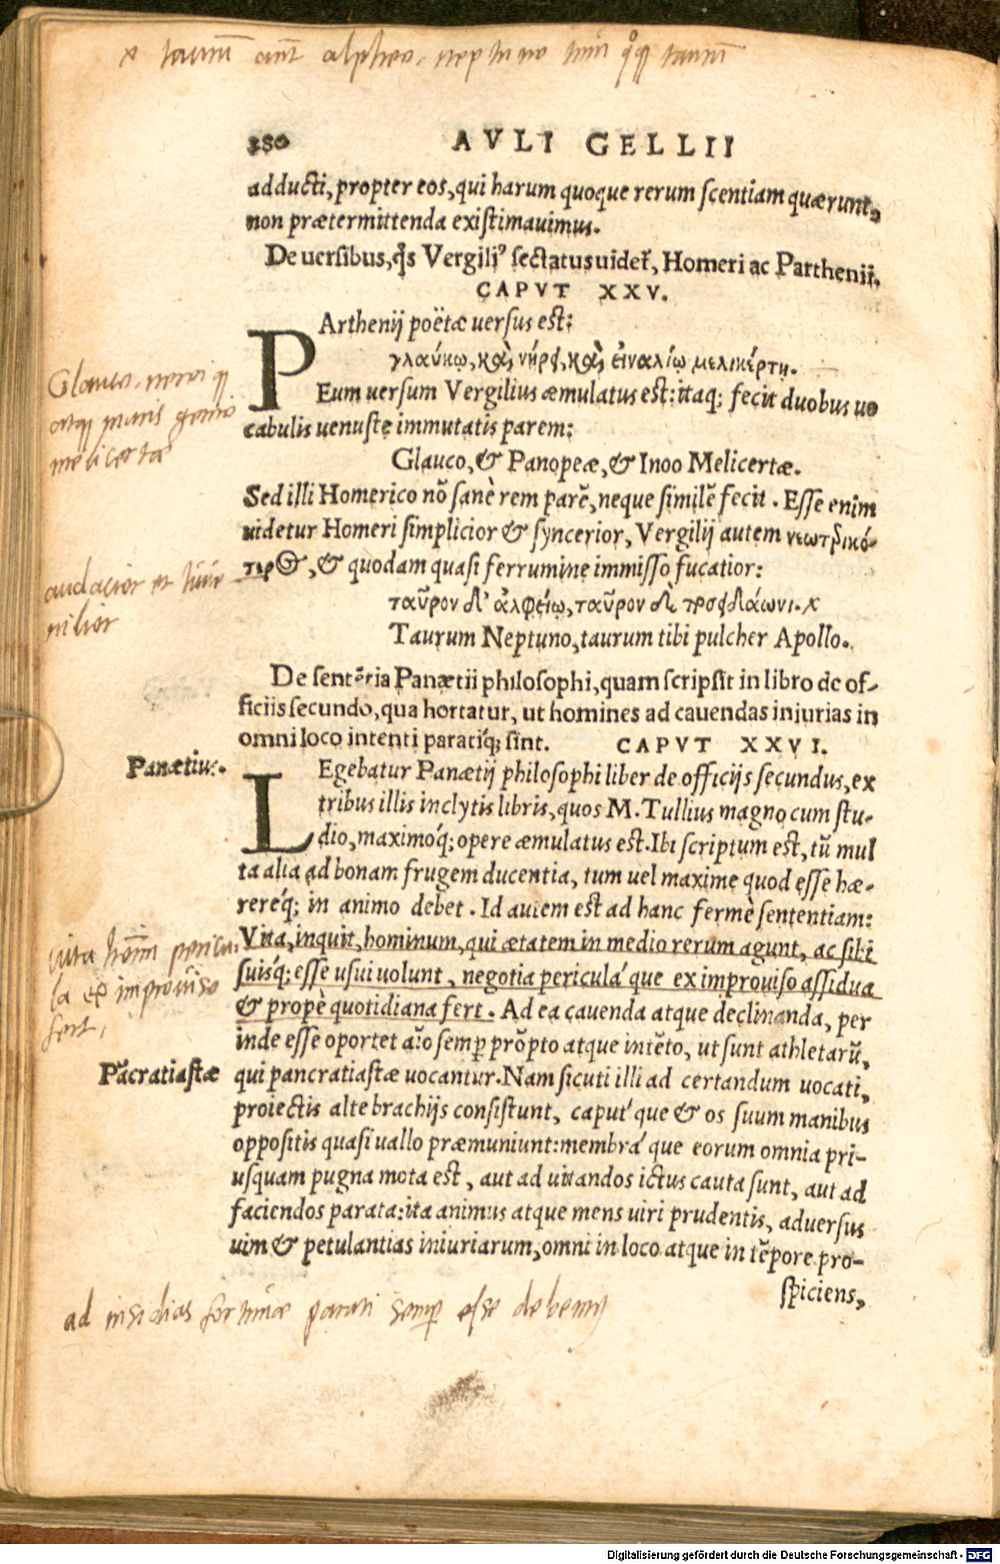 × taurũ aũt alpheo, neptuno tuũ q̊q̃ taurũ
380 AVLI GELLII
adducti, propter eos, qui harum quoque rerum scentiam quærunt,
non prætermittenda existimauimus.
De uersibus, q̃s Vergili⁹ sectatus uidet̃, Homeri ac Parthenii.
CAPVT XXV.
PArthenij poëtæ uersus est:
γλαύκῳ, καὶ νήρει, καὶ εἰναλίῳ μελικέρτῃ.
Eum uersum Vergilius æmulatus est: itaq; fecit duobus uo
cabulis uenuste immutatis parem:
Glauco, & Panopeæ, & Inoo Melicertæ.
Sed illi Homerico nõ sanè rem parẽ, neque similẽ fecit. Esse enim
uidetur Homeri simplicior & syncerior, Vergilij autem νεωτερικό-
τερος, & quodam quasi ferrumine immisso fucatior:
ταῦρον δ' ἀλφειῷ, ταῦρον δὲ ποσειδάωνι. ×
Taurum Neptuno, taurum tibi pulcher Apollo.
Glauco, nerei q̃
atq̃ maris genio
melicertæ
audacior et iuue
nilior
De sentẽtia Panætii philosophi, quam scripsit in libro de of-
ficiis secundo, qua hortatur, ut homines ad cauendas iniurias in
omni loco intenti paratiq́; sint. CAPVT XXVI.
Panætius.
LEgebatur Panætij philosophi liber de officijs secundus, ex
tribus illis inclytis libris, quos M. Tullius magno cum stu-
dio, maximoq́; opere æmulatus est. Ibi scriptum est, tũ mul
ta alia ad bonam frugem ducentia, tum uel maxime quod esse hæ-
rereq́; in animo debet. Id autem est ad hanc fermè sententiam:
Vita, inquit, hominum, qui ætatem in medio rerum agunt, ac sibi
suisq́; esse usui uolunt, negotia periculá que ex improuiso assidua
& propè quotidiana fert. Ad ea cauenda atque declinanda, per
inde esse oportet aĩo semp̃ prõpto atque intẽto, ut sunt athletarũ,
qui pancratiastæ uocantur. Nam sicuti illi ad certandum uocati,
proiectis alte brachijs consistunt, caputʹ que & os suum manibus
oppositis quasi uallo præmuniunt: membráʹ que eorum omnia pri-
usquam pugna mota est, aut ad uitandos ictus cauta sunt, aut ad
faciendos parata: ita animus atque mens uiri prudentis, aduersus
uim & petulantias iniuriarum, omni in loco atque in tẽpore pro-
spiciens,
uita hoĩm pericu
la ex improuiso
fert,
Pãcratiastæ
ad insidias fortunæ parati semp̃ esse debemus